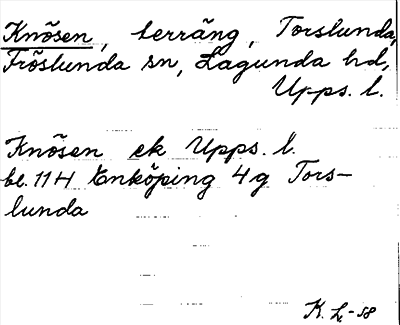 Knösen, terräng, Torslunda,
Fröslunda sn, Lagunda hd,
Upps. l.
Knösen ek Upps. l.
bl. 11H Enköping 4g Tors-
lunda
K. L. -58